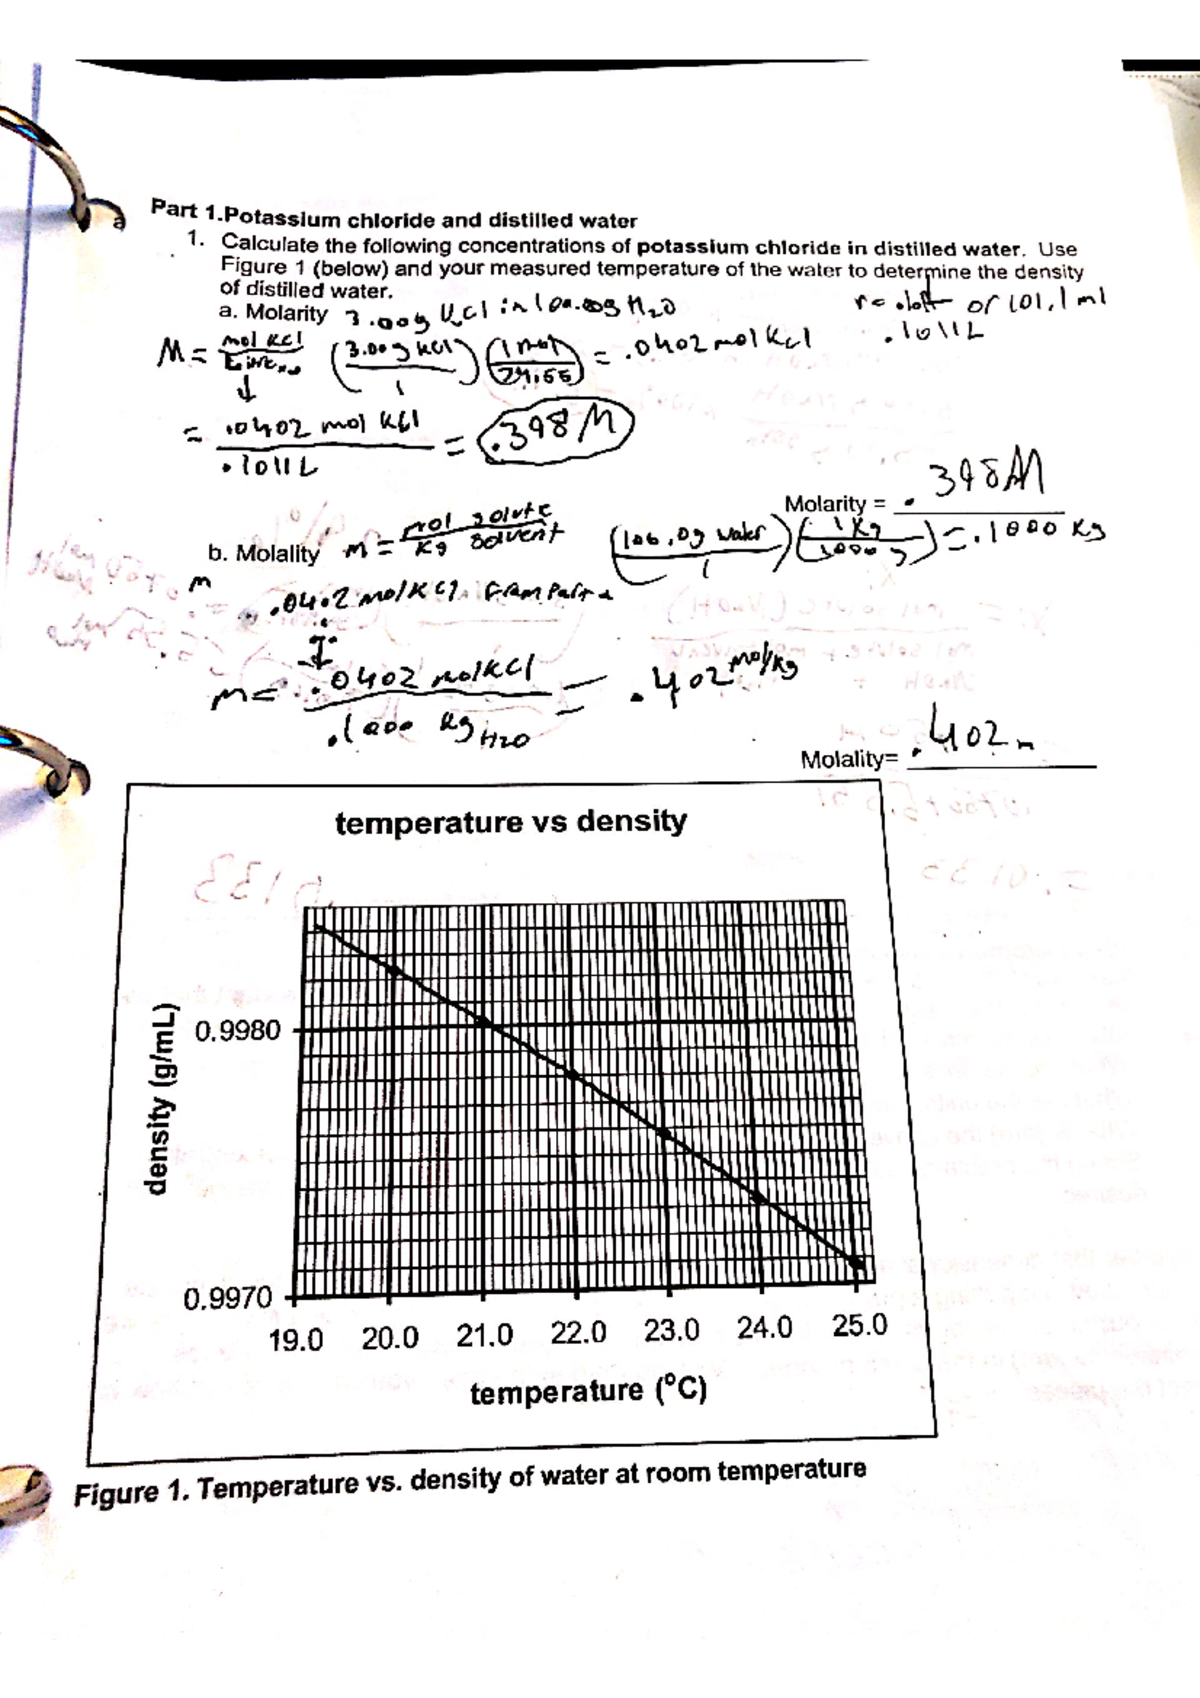 Part 1. Potassium chloride and distilled water
1. Calculate the following concentrations of potassium chloride in distilled water. Use
Figure 1 (below) and your measured temperature of the water to determine the density
of distilled water.
a. Molarity 3.00g KCl in 100.00g H2O
or 101.1 ml
.1011L
M = mol KCl (3.00g KCl) (1 mol) = .0402 mol KCl
1
= .0402 mol KCl = .398M
.1011L
Molarity = .398M
b. Molality m = mol solute
kg solvent
(100.0g water) (1 kg) = .1000 kg
1 1000 g
m
.0402 mol KCl from part a
m = .0402 mol KCl = .402 mol/kg
.1000 kg H2O
Molality= .402m
temperature vs density
density (g/mL)
0.9980
0.9970
19.0 20.0 21.0 22.0 23.0 24.0 25.0
temperature (°C)
Figure 1. Temperature vs. density of water at room temperature